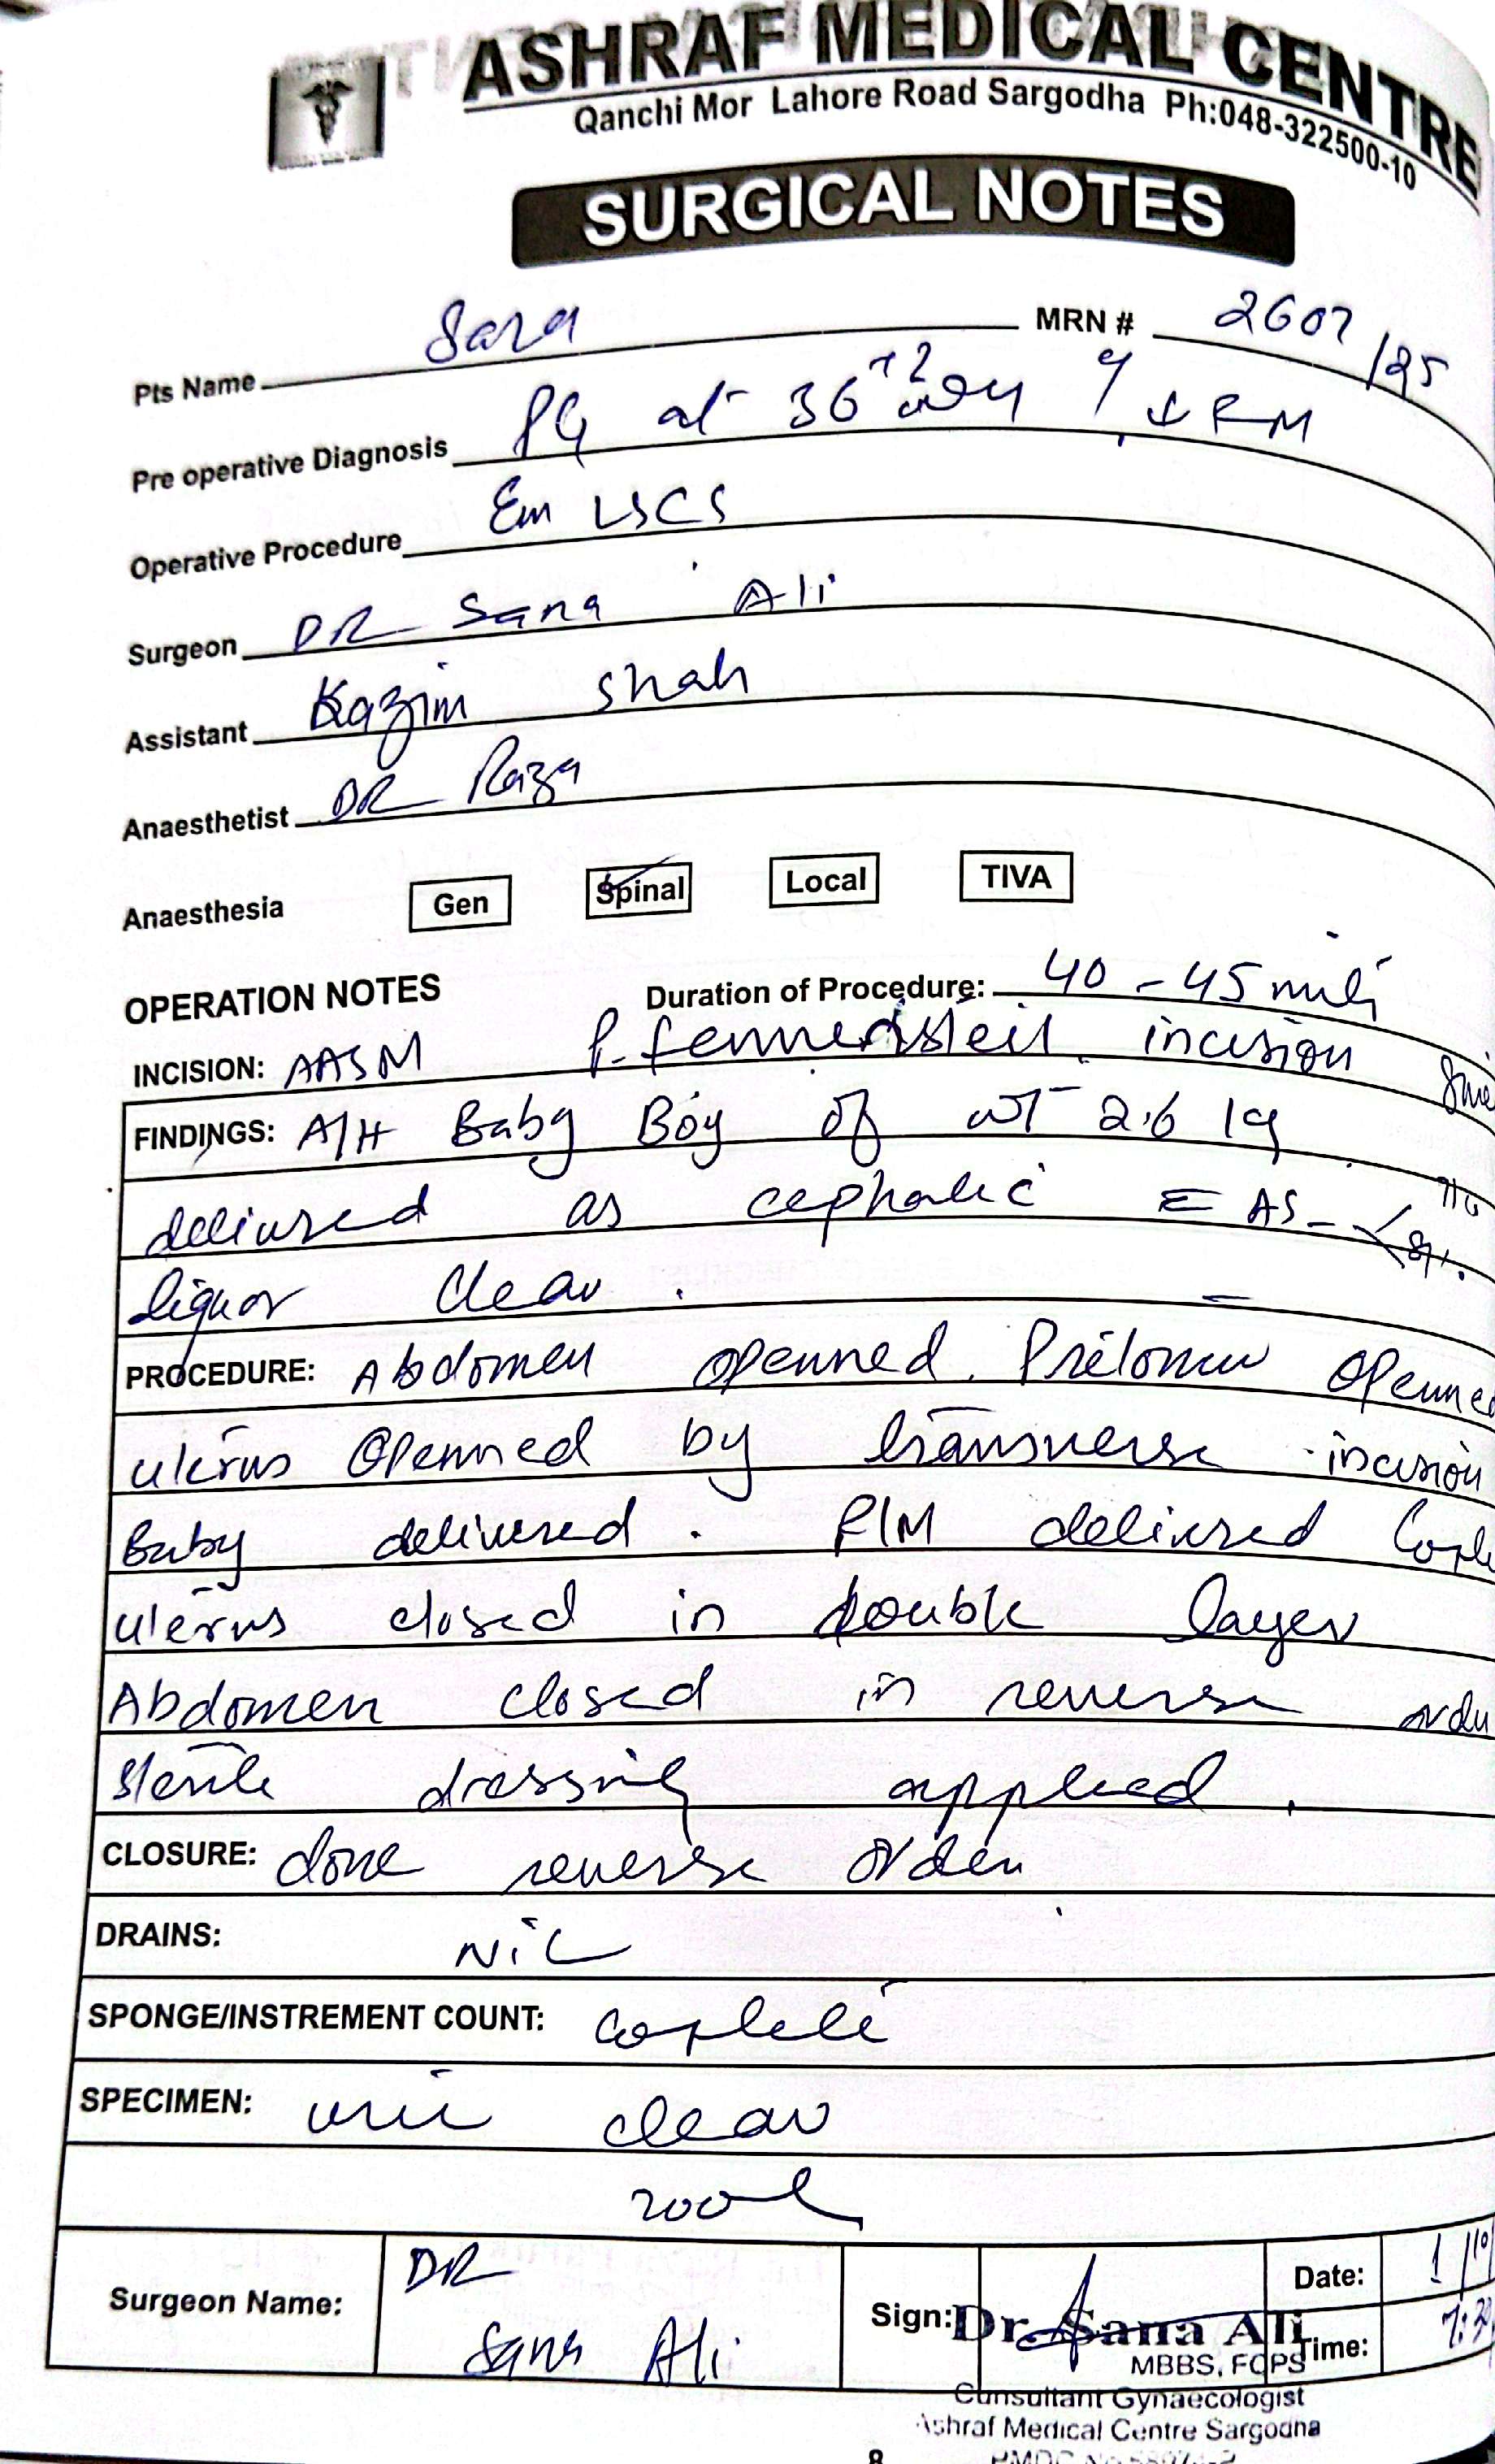 ASHRAF MEDICAL CENTRE
Qanchi Mor Lahore Road Sargodha Ph:048-322500-10
SURGICAL NOTES
Pts Name Sara MRN # 2607/25
Pre operative Diagnosis PG at 36+2 ↓FM
Operative Procedure Em LSCS
Surgeon DR Sana Ali
Assistant Kazim Shah
Anaesthetist DR Raza
Anaesthesia Gen Spinal Local TIVA
OPERATION NOTES Duration of Procedure: 40-45
INCISION: AASM incision
FINDINGS: A/H Baby Boy of wt 2.6 kg
delivered as cephalic AS-
liquor clear.
PROCEDURE: Abdomen openned.
uterus openned by transverse incision
Baby delivered. P/M delivered
uterus closed in double layer
Abdomen closed in reverse
sterile dressing applied.
CLOSURE: done reverse order
DRAINS: NiL
SPONGE/INSTREMENT COUNT: coplete
SPECIMEN: clear
Surgeon Name: DR Sana Ali Sign: Date:
Time:
Dr. Sana Ali
MBBS, FCPS
Consultant Gynaecologist
Ashraf Medical Centre Sargodha
8